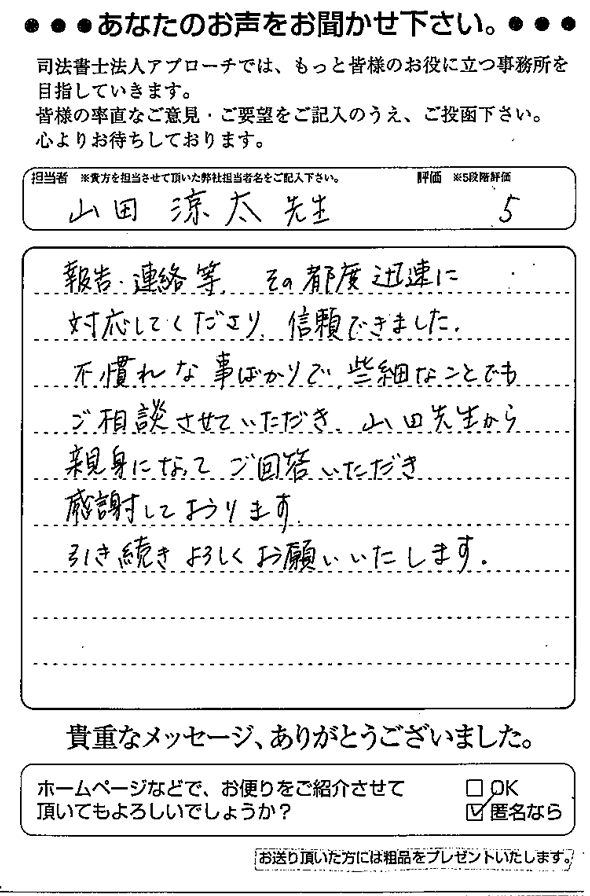 ●●●あなたのお声をお聞かせ下さい。●●●
司法書士法人アプローチでは、もっと皆様のお役に立つ事務所を
目指していきます。
皆様の率直なご意見・ご要望をご記入のうえ、ご投函下さい。
心よりお待ちしております。
担当者 ※貴方を担当させて頂いた弊社担当者名をご記入下さい。 評価 ※5段階評価
山田 涼太 先生 5
報告・連絡等、その都度迅速に
対応してくださり、信頼できました。
不慣れな事ばかりで、些細なことでも
ご相談させていただき、山田先生から
親身になってご回答いただき
感謝しております。
引き続きよろしくお願いいたします。
貴重なメッセージ、ありがとうございました。
ホームページなどで、お便りをご紹介させて □ OK
頂いてもよろしいでしょうか? ☑ 匿名なら
お送り頂いた方には粗品をプレゼントいたします。